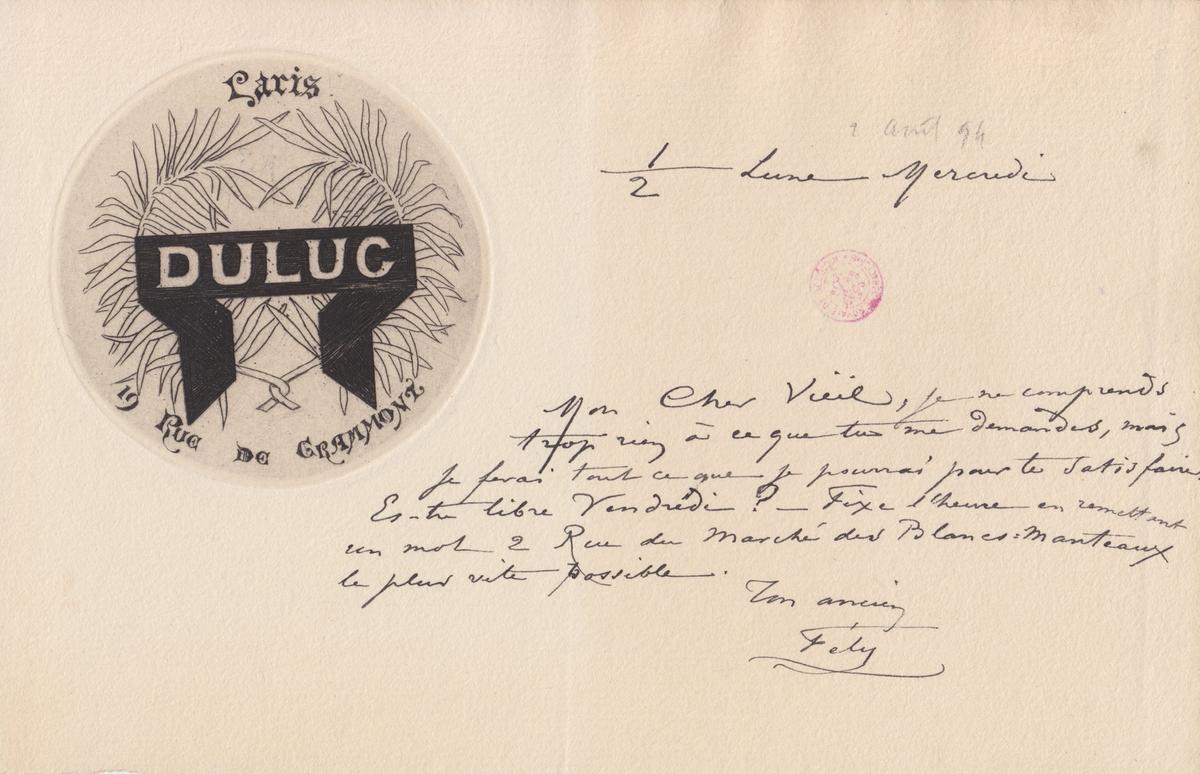 Paris
DULUC
19 RUE DE GRAMMONT
1/2 Lune Mercredi
Mon Cher Vieil, je ne comprends
trop rien à ce que tu me demandes, mais
je ferai tout ce que je pourrai pour te satisfaire,
Es-tu libre Vendredi ? _ Fixe l'heure en remettant
un mot 2 Rue du Marché des Blancs=Manteaux
le plus vite possible.
Ton ancien
Fély